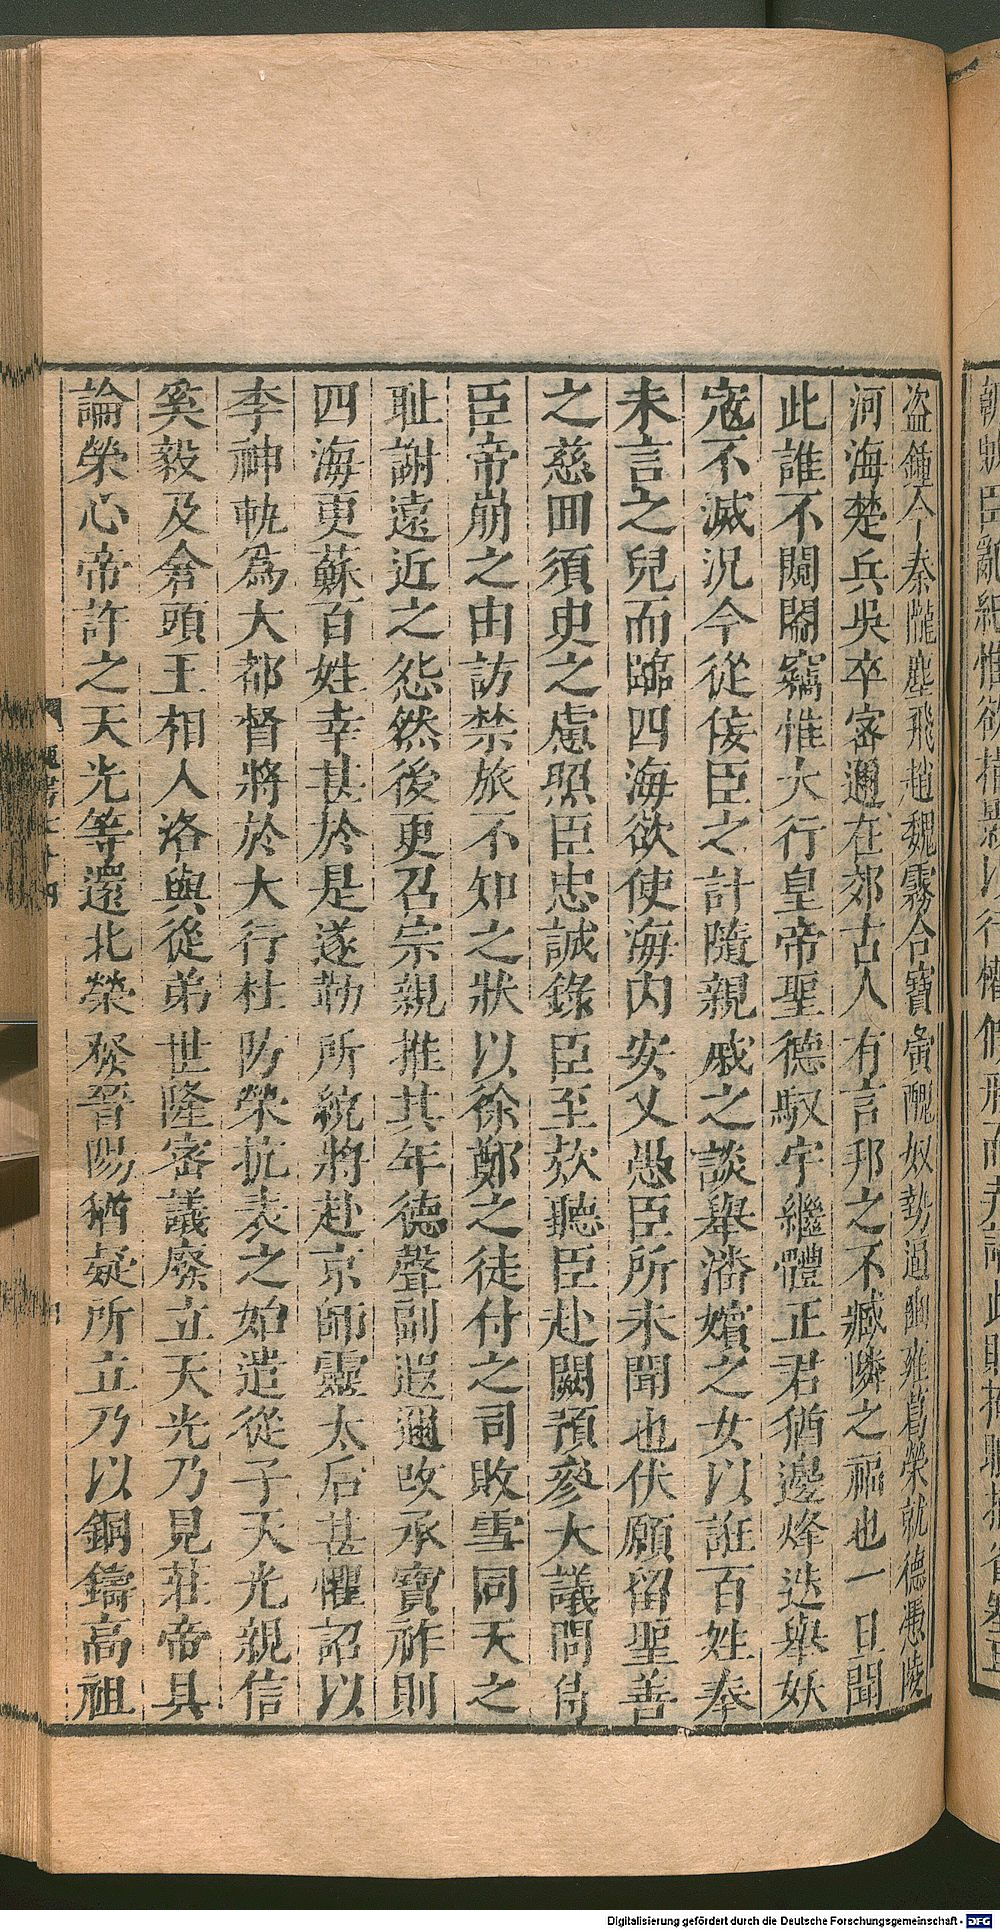 盜鍾今秦隴塵飛趙魏霧合寶夤醜奴勢逼豳雍葛榮就德憑陵
河海楚兵吳卒密邇在郊古人有言邦之不臧隣之福也一旦聞
此誰不闚閽竊惟大行皇帝聖德馭宇繼體正君猶邊烽迭舉妖
寇不滅況今從佞臣之計隨親戚之談舉潘嬪之女以誑百姓奉
未言之兒而臨四海欲使海內安乂愚臣所未聞也伏願留聖善
之慈回須臾之慮照臣忠誠錄臣至款聽臣赴闕預參大議問侍
臣帝崩之由訪禁旅不知之狀以徐鄭之徒付之司敗雪同天之
耻謝遠近之怨然後更召宗親推其年德聲副遐邇改承寶祚則
四海更蘇百姓幸甚於是遂勒所統將赴京師靈太后甚懼詔以
李神軌為大都督將於大行杜防榮抗表之始遣從子天光親信
奚毅及倉頭王相入洛與從弟世隆密議廢立天光乃見莊帝具
論榮心帝許之天光等還北榮發晉陽猶疑所立乃以銅鑄高祖
Digitalisierung gefördert durch die Deutsche Forschungsgemeinschaft - DFG